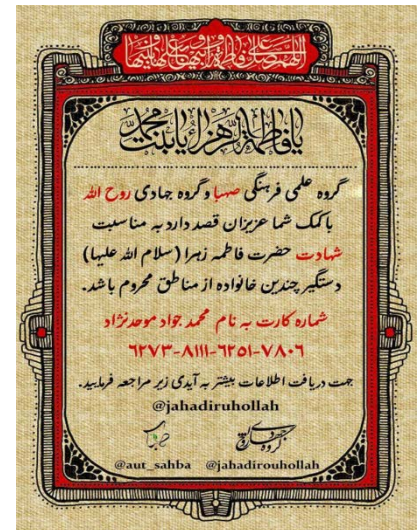 اللهم صل علی فاطمة و ابیها و بعلها و بنیها
یا فاطمة الزهراء یا بنت محمد
گروه علمی فرهنگی صهبا و گروه جهادی روح الله
با کمک شما عزیزان قصد دارد به مناسبت
شهادت حضرت فاطمه زهرا (سلام الله علیها)
دستگیر چندین خانواده از مناطق محروم باشد.
شماره کارت به نام محمد جواد موحدنژاد
۶۲۷۳-۸۱۱۱-۶۲۵۱-۷۸۰۶
جهت دریافت اطلاعات بیشتر به آیدی زیر مراجعه فرمایید.
@jahadiruhollah
صهبا گروه جهادی
@aut_sahba @jahadirouhollah